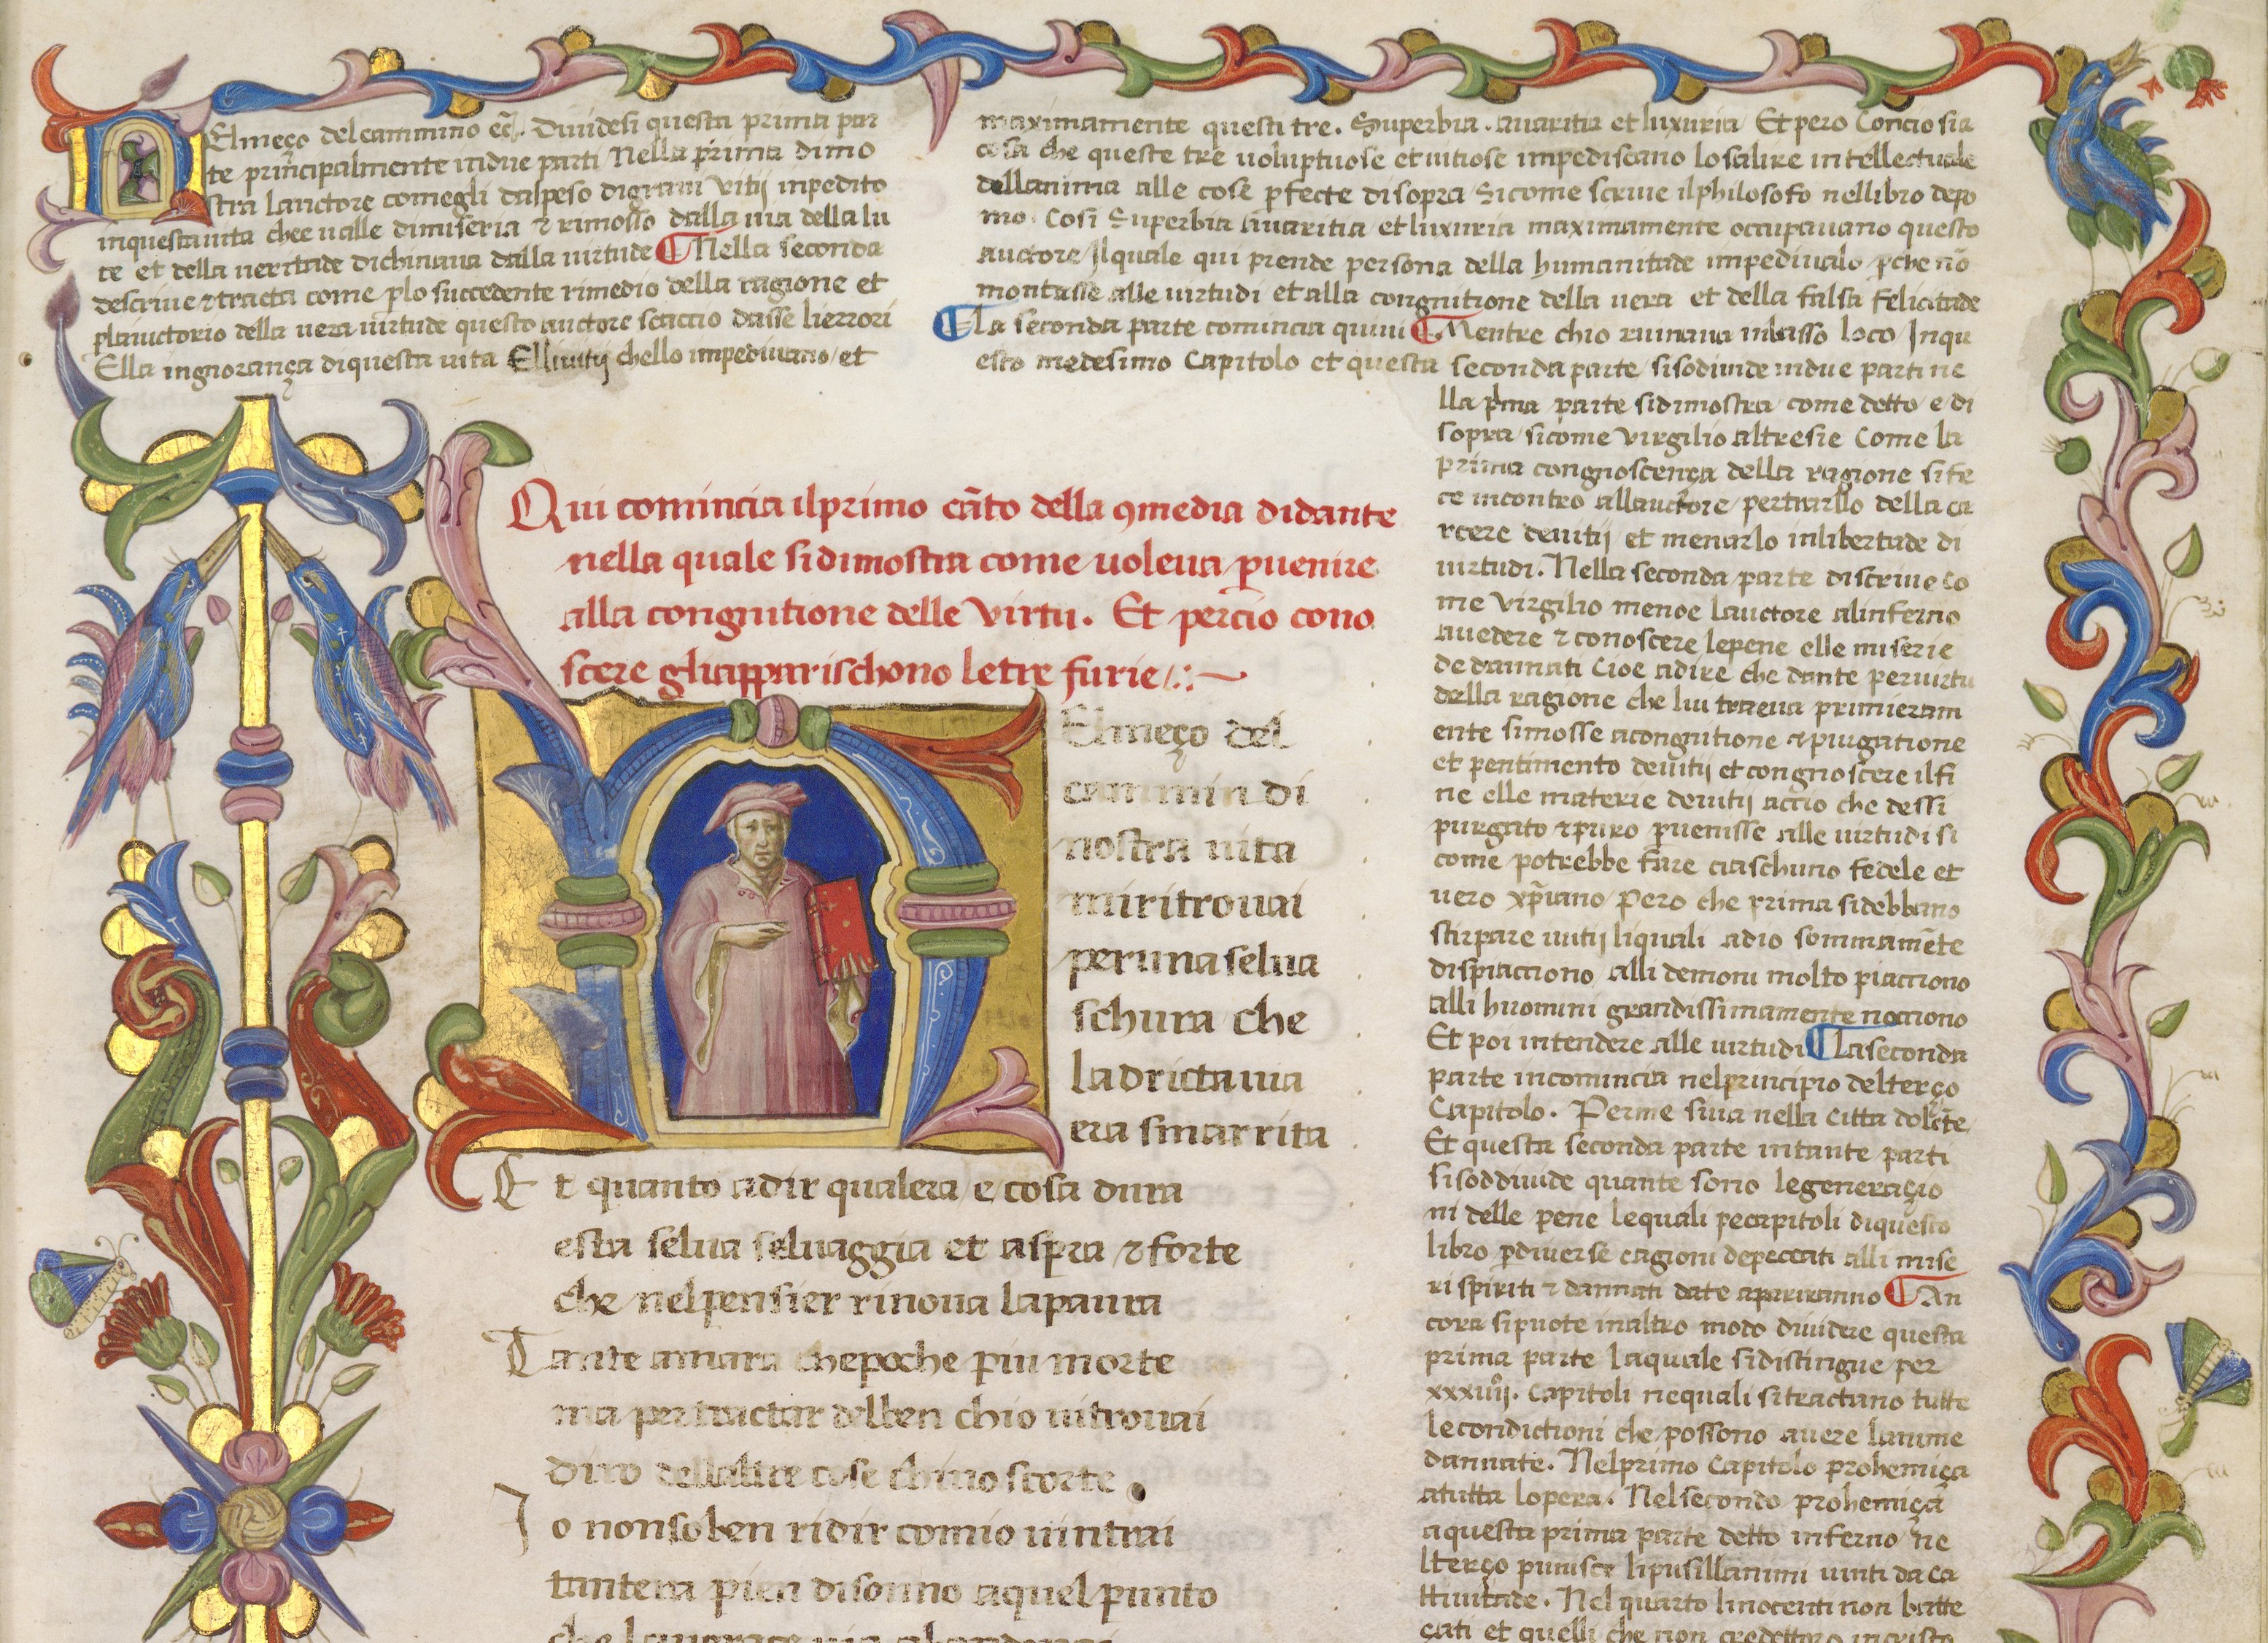 Elmeço del cammino ec̃. Diuidesi questa prima par
te prĩcipalmente indue parti Nella prima dimo
stra lauctore comegli daspeso digraui vitij inpedito
inquestauita chee ualle dimiseria ⁊ rimosso dalla uia della lu
ce et della ueritade dichinaua dalla uirtude ¶ Nella seconda
descriue ⁊tracta come plo succedente rimedio della ragione et
plauctorio della uera uirtude questo auctore scaccio dasse lierrori
Ella ingnorança diquesta uita Elliuitij chello impediuano/et
maximamente questi tre. Superbia. auaritia et luxuria Et pero Concio sia
cosa che queste tre uoluptuose etuitiose impediscano lo salire intellectuale
dellanima alle cose pfecte disopra/Sicome scriue ilphilosofo nellibro depo
mo. Così Superbia auaritia et luxuria maximamente occupauano questo
auctore/Ilquale qui prende persona della humanitade impediualo pche nõ
montasse alle uirtudi et alla congnitione della uera et della falsa felicitade
¶ La seconda parte comincia quiui ¶ Mentre chio ruinaua inbasso loco Inqu
esto medesimo Capitolo et questa seconda parte/sisodiuide indue parti ne
lla pma parte sidimostra come detto e di
sopra/sicome virgilio altresie Come la
prima congnoscença della ragione si fe
ce incontro allauctore/pertrarllo della ca
rcere deuitij et menarlo inlibertade di
uirtudi. Nella seconda parte discriue co
me virgilio menoe lauctore alinferno
auedere ⁊ conoscere lepene elle miserie
dedannati Cioe adire che dante peruirtu
della ragione che lui traeua primieram
ente simosse acongnitione ⁊purgatione
et pentimento deuitij et congnoscere ilfi
ne elle materie deuitij accio che dessi
purgato ⁊puro puenisse alle uirtudi si
come potrebbe fare ciaschuno fedele et
uero xp̃iano Pero che prima sidebbano
stirpare iuitij liquali adio sommamẽte
dispiacciono alli demoni molto piacciono
alli huomini grandissimamente nocciono
Et poi intendere alle uirtudi ¶ La seconda
parte incomincia nelprincipio delterço
Capitolo. Perme siua nella citta dolẽte
Et questa seconda parte intante parti
sisoddiuide quante sono legeneraçio
ni delle pene lequali pecapitoli diquesto
libro pdiuerse cagioni depeccati alli mise
ri spiriti ⁊ dannati date apariranno ¶ An
cora sipuote inaltro modo diuidere questa
prima parte laquale sidistingue per
Capitoli nequali sitractano tutte
lecondictioni che possono auere lanime
dannate. Nelprimo Capitolo prohemiça
atutta lopera. Nelsecondo prohemiça
aquesta prima parte detto inferno ne
lterço punisce lipusillanimi uinti da ca
ttiuitade. Nel quarto linocenti non batte
çati et quelli che non credettero incristo
Qui comincia ilprimo cãto della 9media didante
nella quale sidimostra come uoleua puenire
alla congnitione delle virtu. Et percio cono
scere gliapparischono letre furie
NElmeço del
cammin di
nostra uita
miritrouai
peruna selua
schura che
ladrictauia
era smarrita
Et quanto adir qualera/e/cosa dura
esta selua seluaggia et aspra ⁊forte
che nelpensier rinoua lapaura
Tante amara chepoche piu morte
ma pertractar delben chio uitrouai
diro dellaltre cose chiuio scorte.
Io nonsoben ridir comio uintrai
tantera pien disonno aquel punto